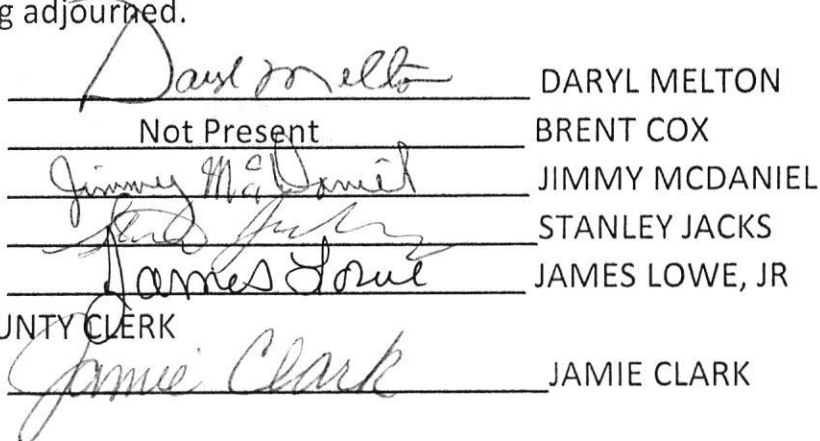 g adjourned.
Daryl Melton DARYL MELTON
Not Present BRENT COX
Jimmy McDaniel JIMMY MCDANIEL
STANLEY JACKS
James Lowe JAMES LOWE, JR
UNTY CLERK
Jamie Clark JAMIE CLARK